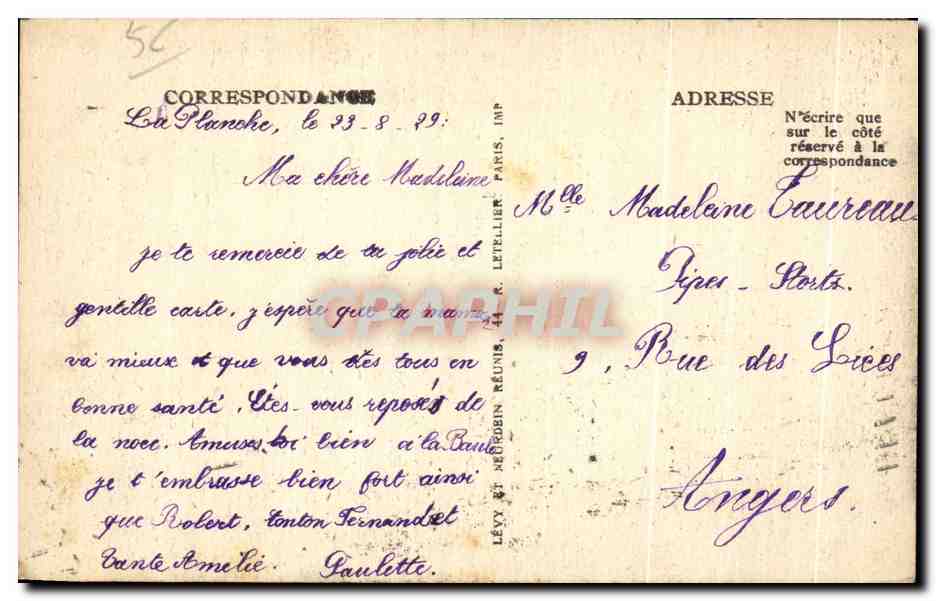 5c
CORRESPONDANCE
La Planche, le 23-8-29:
Ma chére Madeleine
je te remercie de ta jolie et
gentille carte, j'espère que ta maman
va mieux et que vous êtes tous en
bonne santé. Etes-vous reposés de
la noce. Amuses-toi bien à la Baule
je t'embrasse bien fort ainsi
que Robert, tonton Fernand et
Tante Amelie. Paulette.
LÉVY ET NEURDEIN RÉUNIS, 44 R. LETELLIER. PARIS, IMP
ADRESSE
N'écrire que
sur le côté
réservé à la
correspondance
Mlle Madeleine Taureau
Pipes-Storts.
9, Rue des Lices
Angers.
CPAPHIL